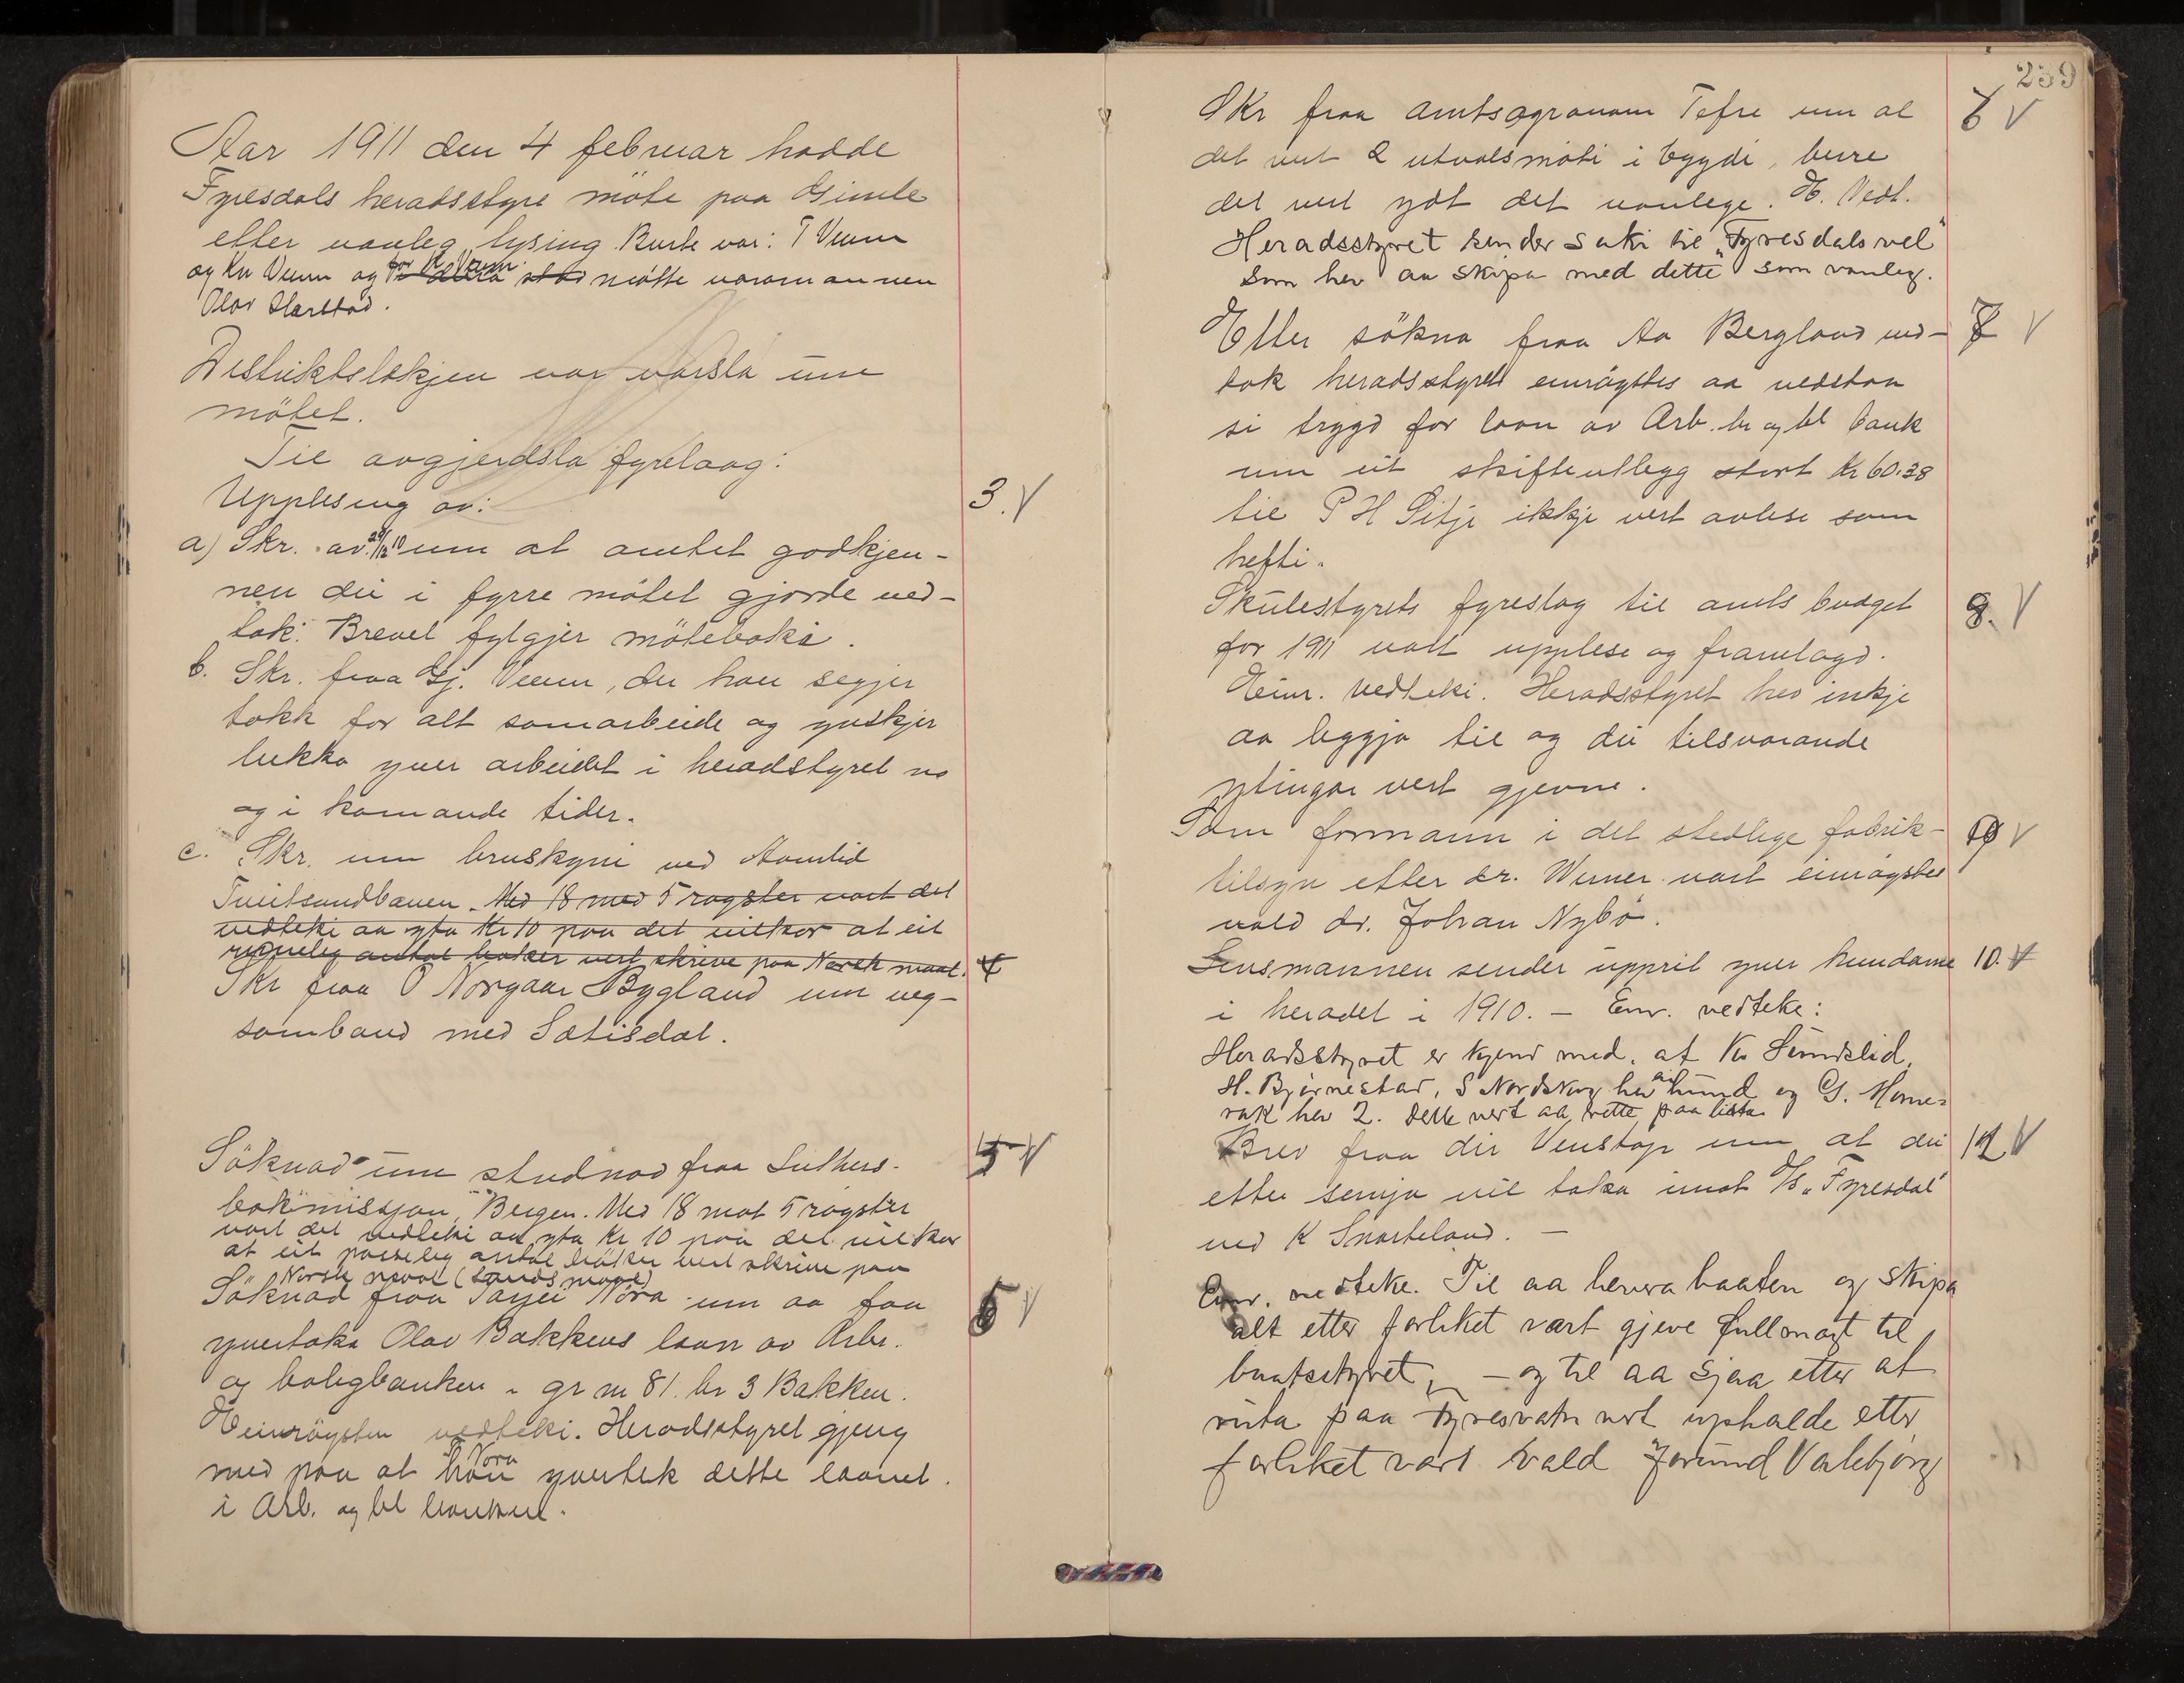 Aar 1911 den 4 februar hadde
Fyresdals heradsstyre møte paa Gimle
etter vanleg lysing. Burte var: T Veum
og Kn Veum og for K Veum møtte varamannen
Olav Harstad.
Distriktslækjen var varsla um
møtet.
Til avgjerdsla fyrelaag:
Upplesing av: 3. V
a) Skr. av 29/12 10 um at amtet godkjen-
nen dei i fyrre møtet gjorde ved-
tok. Brevet fylgjer møteboki.
b. Skr. fraa Gj. Veum, der han segjer
takk for alt samarbeide og ynskjer
lukka yver arbeidet i heradstyret no
og i komande tider.
c. Skr. um bruskyni ved Aamlid
Tveitsundbanen. Med 18 mod 5 røyster vart det
vedteki aa yta Kr 10 paa det vilkor at eit
rimeleg antal bøker vert skrive paa Norsk maal. 4
Skr fraa O Norgaar Bygland um veg-
samband med Sætisdal.
Søknad um studnad fraa Luthers- 5 V
bokmissjon, Bergen. Med 18 mot 5 røyster
vart det vedteki aa yta Kr 10 paa det vilkor
at eit passeleg antal bøker vert skrive paa
Norsk maal (Landsmaal)
Søknad fraa Tarjei Nora um aa faa 6 V
yvertaka Olav Bakkens laan av Arbr.
og boligbanken - gr nr 81. br 3 Bakken.
Heimrøysten vedteki. Heradsstyret gjeng
med paa at T Nora yvertek dette laanet
i Arb. og bl banken.
239
Skr fraa amtsagronom Tefre um at 6 V
det vert 2 utvalsmøti i bygdi, berre
det vert ydt det vanlege. H. Vedt.
Heradsstyret sender saki til "Fyresdals vel"
som hev aa skipa med dette som vanleg.
Etter søkna fraa Aa Bergland ved- 7 V
tok heradsstyret einrøystes aa vedstaa
si trygd for laan av Arb. br og bl bank
um eit skifteutlegg stort Kr 60.38
til P H Sitje ikkje vert avlese som
hefti.
Skulestyrets fyreslag til amts budget 8. V
for 1911 vart upplese og framlagd.
Heimr. vedteki. Heradsstyret hev inkje
aa leggja til og dei tilsvarande
ytingar vert gjevne.
Som formann i det stedlige fabrik- 9 V
tilsyn etter dr. Werner vart einrøystes
vald dr. Johan Nybø.
Lensmannen sender upprit yver hundarne 10. V
i heradet i 1910. – Einr. vedteke:
Heradsstyret er kjend med, at Kn Sundslid,
H. Bjørnestad, S Nordskog hev ein hund og G. Mome-
rak hev 2. Dette vert aa rette paa lista
Brev fraa dir Venstøp um at dei 11 V
etter semja vil taka imot D/S "Fyresdal"
ved K Snarteland. –
Einr. vedteke. Til aa levera baaten og skipa
alt etter forliket vart gjeve fullmagt til
baatstyret, – og til aa sjaa etter at
ruta paa Fyresvatn vert uphalde etter
forliket vart vald Jørund Valebjørg